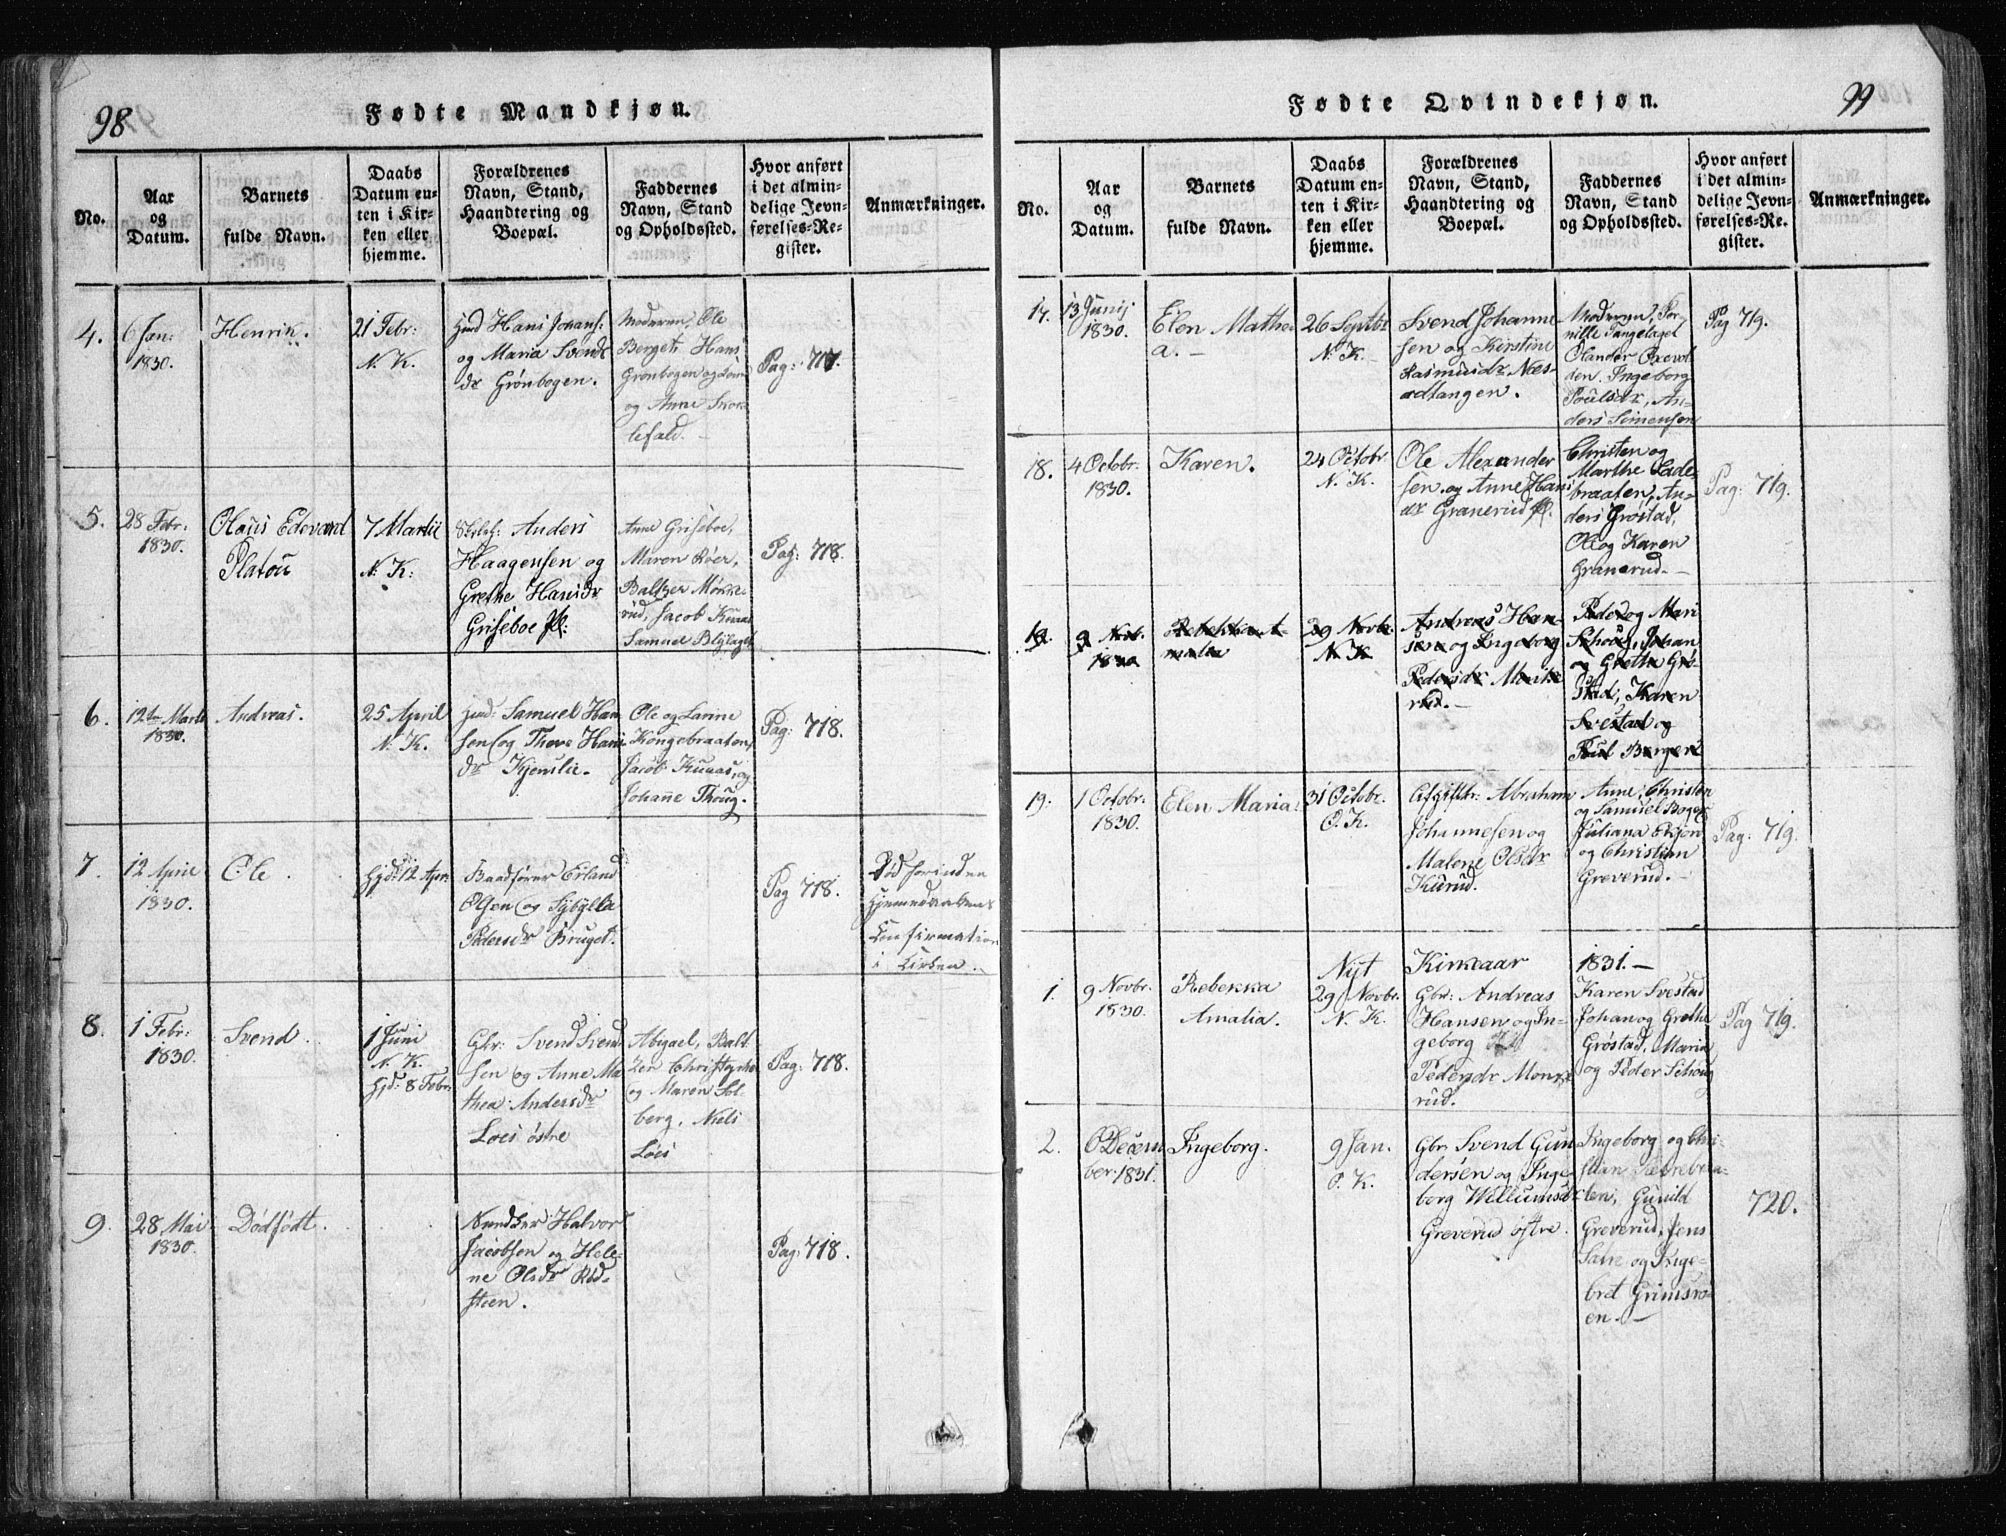 98
Fødte Mandkjøn.
No.
Aar
og
Datum.
Barnets
fulde Navn.
Daabs
Datum en-
ten i Kir-
ken eller
hjemme.
Forældrenes
Navn, Stand,
Haandtering og
Boepæl.
Faddernes
Navn, Stand
og Opholdssted.
Hvor anført
i det almin-
delige Jevn-
førelses-Re-
gister.
Anmærkninger.
4.
6 Jan:
1830.
Henrik.
21 Febr:
N. K.
Hans Johans:
og Maria Svends
dr Grønbogen.
Moderen, Ole
Berget, Hans
Grønbogen
og Anne
Pag: 717.
5.
28 Febr:
1830.
Olaus Edevard
Platou
7 Martii
N. K:
Anders
Haagensen og
Grethe Hansdr
Griseboe Pl:
Anne Griseboe,
Maren Röer,
Baltzer Mørke-
rud, Jacob
Samuel Blylaget
Pag: 718.
6.
12te Marts
1830.
Andreas.
25 April
N. K.
Samuel Han
sen og Thore Hans
dr Kjenslie.
Ole og Larine
Kongebraaten,
Jacob Kunas, og
Johanne Thoug.
Pag: 718.
7.
12 April
1830.
Ole
Hjd: 12 Apr:
Baadfører Erland
Olsen og Sybylla
Pedersdr Bruget.
Pag 718.
Død forinden
Hjemmedaabens
Confirmation
i Kirken.
8.
1 Febr:
1830.
Svend.
1 Juni
N. K.
Hjd: 8 Febr:
Gbr: Svend Svend
sen og Anne Ma
thea Andersdr
Loes østre
Abigael, Balt
zer Christophe
og Maren Sol-
berg, Niels
Loes
Pag: 718.
9.
28 Mai
1830.
Dødfødt.
Halvor
Jacobsen og Hele-
ne Olsdr Rød-
steen.
Pag: 718.
99
Fødte Qvindekjøn.
No.
Aar
og
Datum.
Barnets
fulde Navn.
Daabs
Datum en-
ten i Kir-
ken eller
hjemme.
Forældrenes
Navn, Stand,
Haandtering og
Boepæl.
Faddernes
Navn, Stand
og Opholdssted.
Hvor anført
i det almin-
delige Jevn-
førelses-Re-
gister.
Anmærkninger.
17.
13 Junij
1830.
Elen Mathe
a.
26 Septbr
N. K.
Svend Johanne
sen og Kirstine
Rasmusdr Næs-
odtangen.
Moderen, Per-
nille Tangelaget
Olander
Ingeborg
Poulsdr, An-
ders Simensen
Pag 719.
18.
4 Octobr.
1830.
Karen.
24 Octobr
N. K.
Ole Alexander
sen og Anne Hans
dr Granerud Pl.
Christen og
Marthe Lade-
braaten, An-
ders Grøstad,
Ole og Karen
Granerud.
Pag: 719.
19.
9 Novb.
1830
Rebekka A-
malia
29 Novbr.
N. K
Andreas Han-
sen og Ingeborg
Pedersdr Monke
rud.
Peder og Mari
Schoug, Johan
og Grethe Grø-
stad, Karen
Svestad og
Poul Berger
19.
1 Octobr.
1830.
Elen Maria.
31 Octobr.
O. K.
Abraham
Johannesen og
Malene Olsdr
Kurud.
Anne, Christen
og Samuel Boger
Juliana
og Christian
Greverud.
Pag: 719.
Nyt Kirkeaar 1831.
1.
9 Novbr.
1830.
Rebekka
Amalia.
29 Novbr.
N. K.
Gbr: Andreas
Hansen og In-
geborg
Pedersdr Monke
rud.
Karen Svestad
Johan og Grethe
Grøstad, Maria
og Peder Schoug
Pag 719.
2.
Decem
ber 1831.
Ingeborg.
9 Jan.
O. K.
Gbr Svend Gun
dersen og Inge-
borg Willumsdr
Greverud østre.
Ingeborg og Chri-
stian
Gunild
Greverud, Jens
og Inge-
bret Grimsrø-
en.
720.